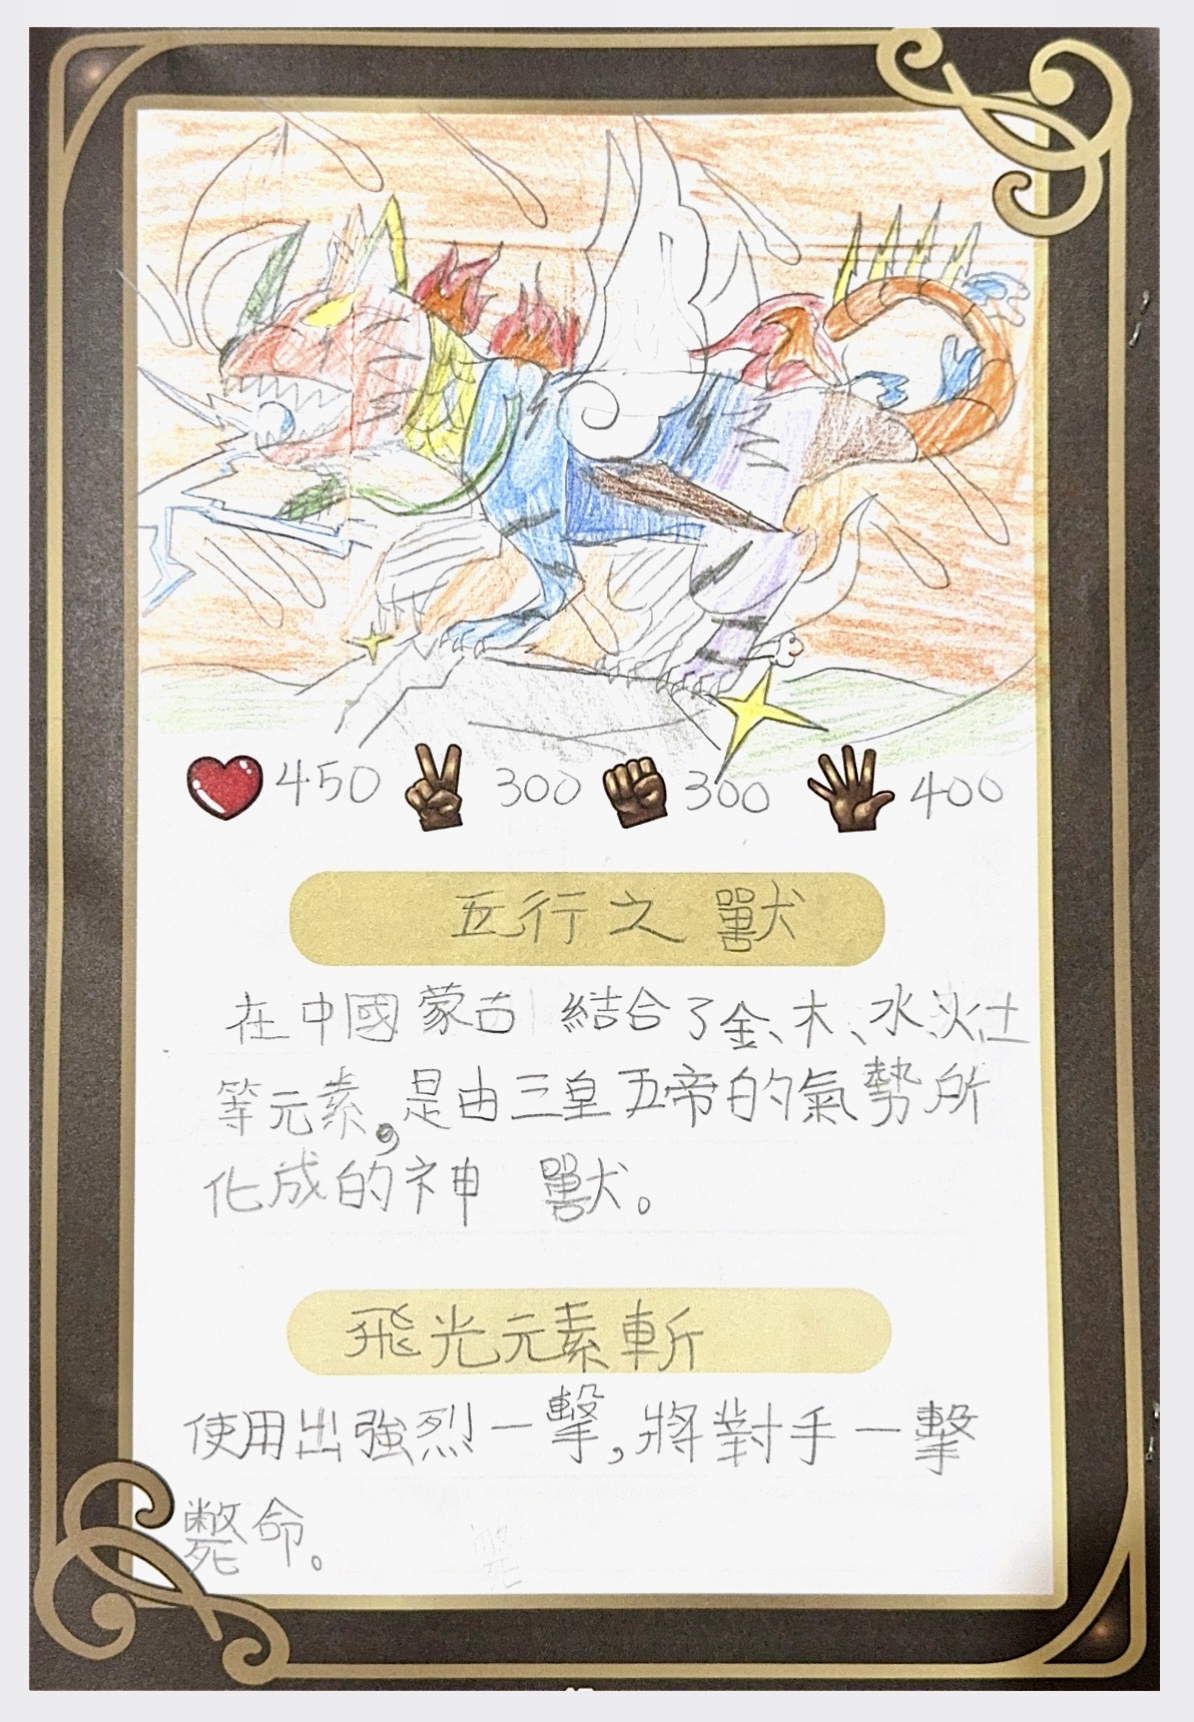 450 300 300 400
五行之獸
在中國蒙古 結合了金、木、水火土
等元素,是由三皇五帝的氣勢所
化成的神 獸。
飛光元素斬
使用出強烈一擊,將對手一擊
斃命。